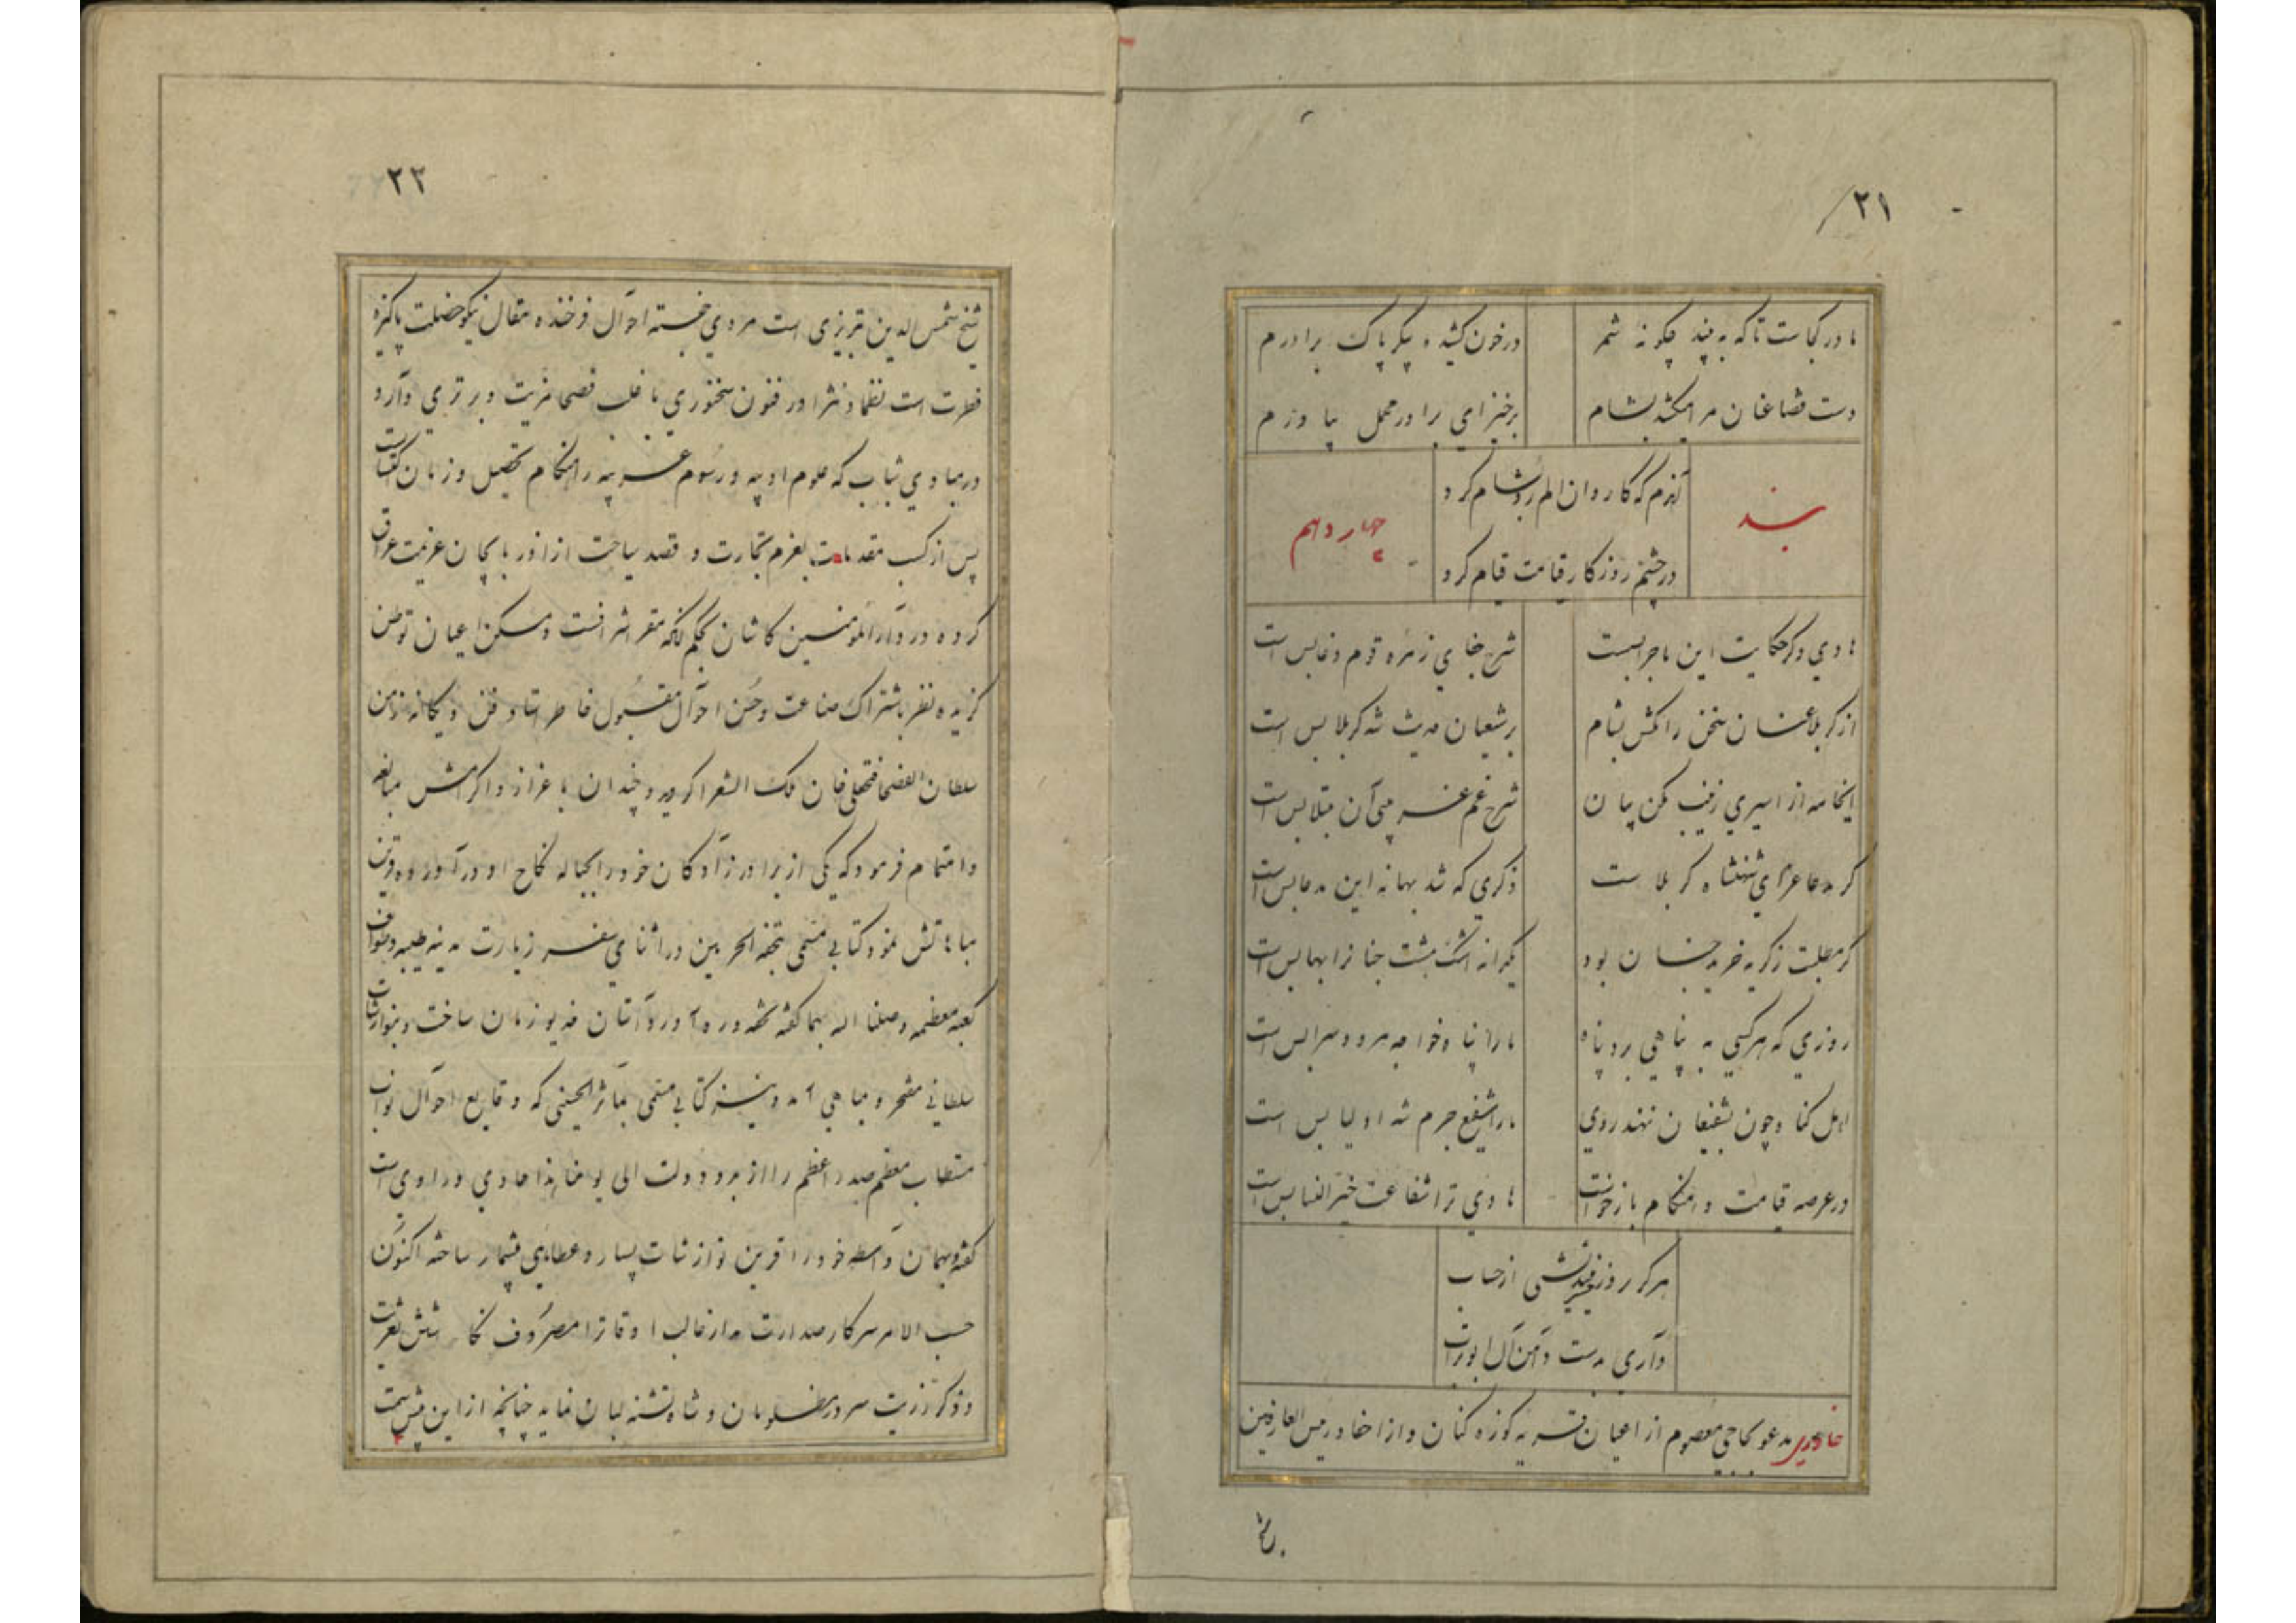 ۲۱
مادر کجاست تا که به بیند چگونه شمر
در خون کشیده پیکر پاک برادرم
دست قضا عنان مرا میکشد بشام
برخیز ای برادر محمل بیاورم
بند
آندم که کاروان الم رو بشام کرد
چهاردهم
در چشم روزگار قیامت قیام کرد
هادی دگر حکایت این ماجرا بست
شرح جفای زمره قوم دغا بس است
از کربلا عنان سخن را مکش بشام
بر شیعیان حدیث شه کربلا بس است
ایخامه از اسیری زینب مکن بیان
شرح غم غریبی آن مبتلا بس است
گر مدعا عزای شهنشاه کربلاست
ذکری که شد بهانه این مدعا بس است
گر مطلبت ز گریه خرید جنان بود
یکدانه اشک هشت جنانرا بها بس است
روزی که هر کسی به پناهی برد پناه
ما را پناه خواجه هر دو سرا بس است
اهل گناه چون بشفیعان نهند روی
ما را شفیع جرم شه اولیا بس است
در عرصه قیامت و هنگام بازخواست
هادی ترا شفاعت خیر النسا بس است
هرگز روز نیندیشی از حساب
داری بدست دامن آل ابوتراب
خاوری مدعو بحاجی معصوم از اعیان قریه کوزه کنان و از احفاد رئیس العارفین
۲۲
شیخ شمس الدین تبریزی است مردی خجسته احوال فرخنده مقال نیکو خصلت پاکیزه
فطرت است نظما و نثرا در فنون سخنوری با اغلب فصحا مزیت و برتری دارد
در مبادی شباب که علوم ادبیه و رسوم عربیه را هنگام تحصیل و زمان اکتساب است
پس از کسب مقدمات بعزم تجارت و قصد سیاحت از آذربایجان عزیمت عراق
کرده در دارالمؤمنین کاشان بحکم آنکه مقر اشرافست و مسکن اعیان توطن
گزیده نظر باشتراک صناعت و حسن احوال مقبول خاطر استاد فن و یگانه زمن
سلطان الفصحا فتحعلی خان ملک الشعرا گردید و چندان باعزاز و اکرامش مبالغه
و اهتمام فرمود که یکی از برادر زادگان خود را بحباله نکاح او در آورده قرین
مباهاتش نمود کتابی مسمی بتحفه الحرمین در اثنای سفر زیارت مدینه طیبه و طواف
کعبه معظمه وصلنا الله بهما گفته تحفه ره آورد آستان خدیو زمان ساخت و بنوازشات
سلطانی مفتخر و مباهی آمد و نیز کتابی مسمی بمآثر الحسنی که وقایع احوال نواب
مستطاب معظم صدر اعظم را از بدو دولت الی یومنا هذا حاوی و راوی است
گفته و بهمان واسطه خود را قرین نوازشات بسیار و عطایای بیشمار ساخته اکنون
حسب الامر سرکار صدارت مدار غالب اوقاترا مصروف نگارش تعزیت
و ذکر رزیت سرور مظلومان و شاه تشنه لبان نماید چنانچه از این پیش سمت